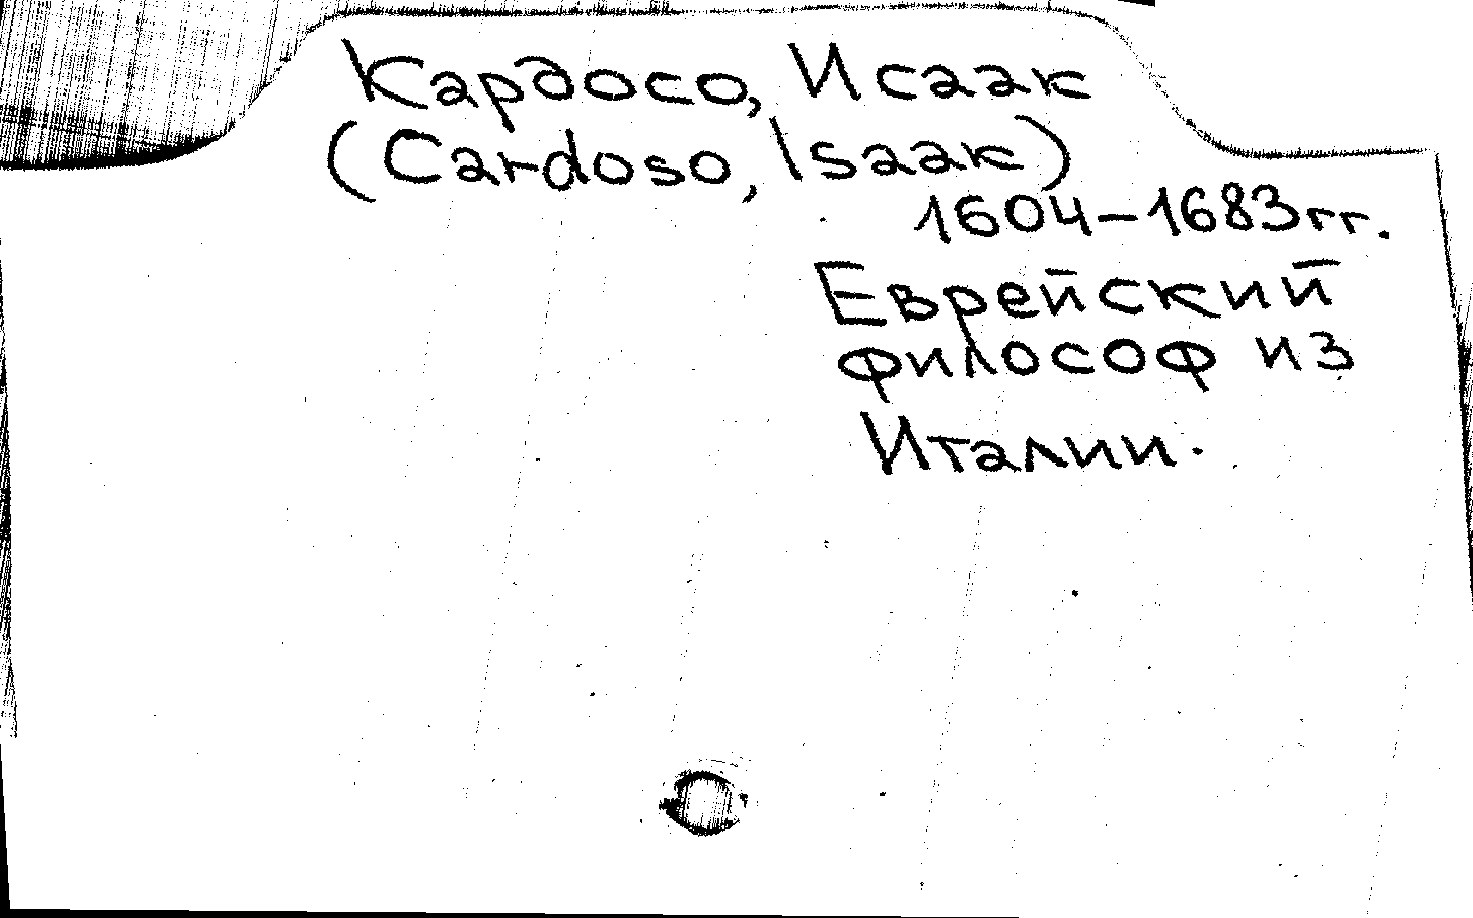 Кардосо, Исаак
(Cardoso, Isaak)
1604-1683гг.
Еврейский
философ из
Италии.